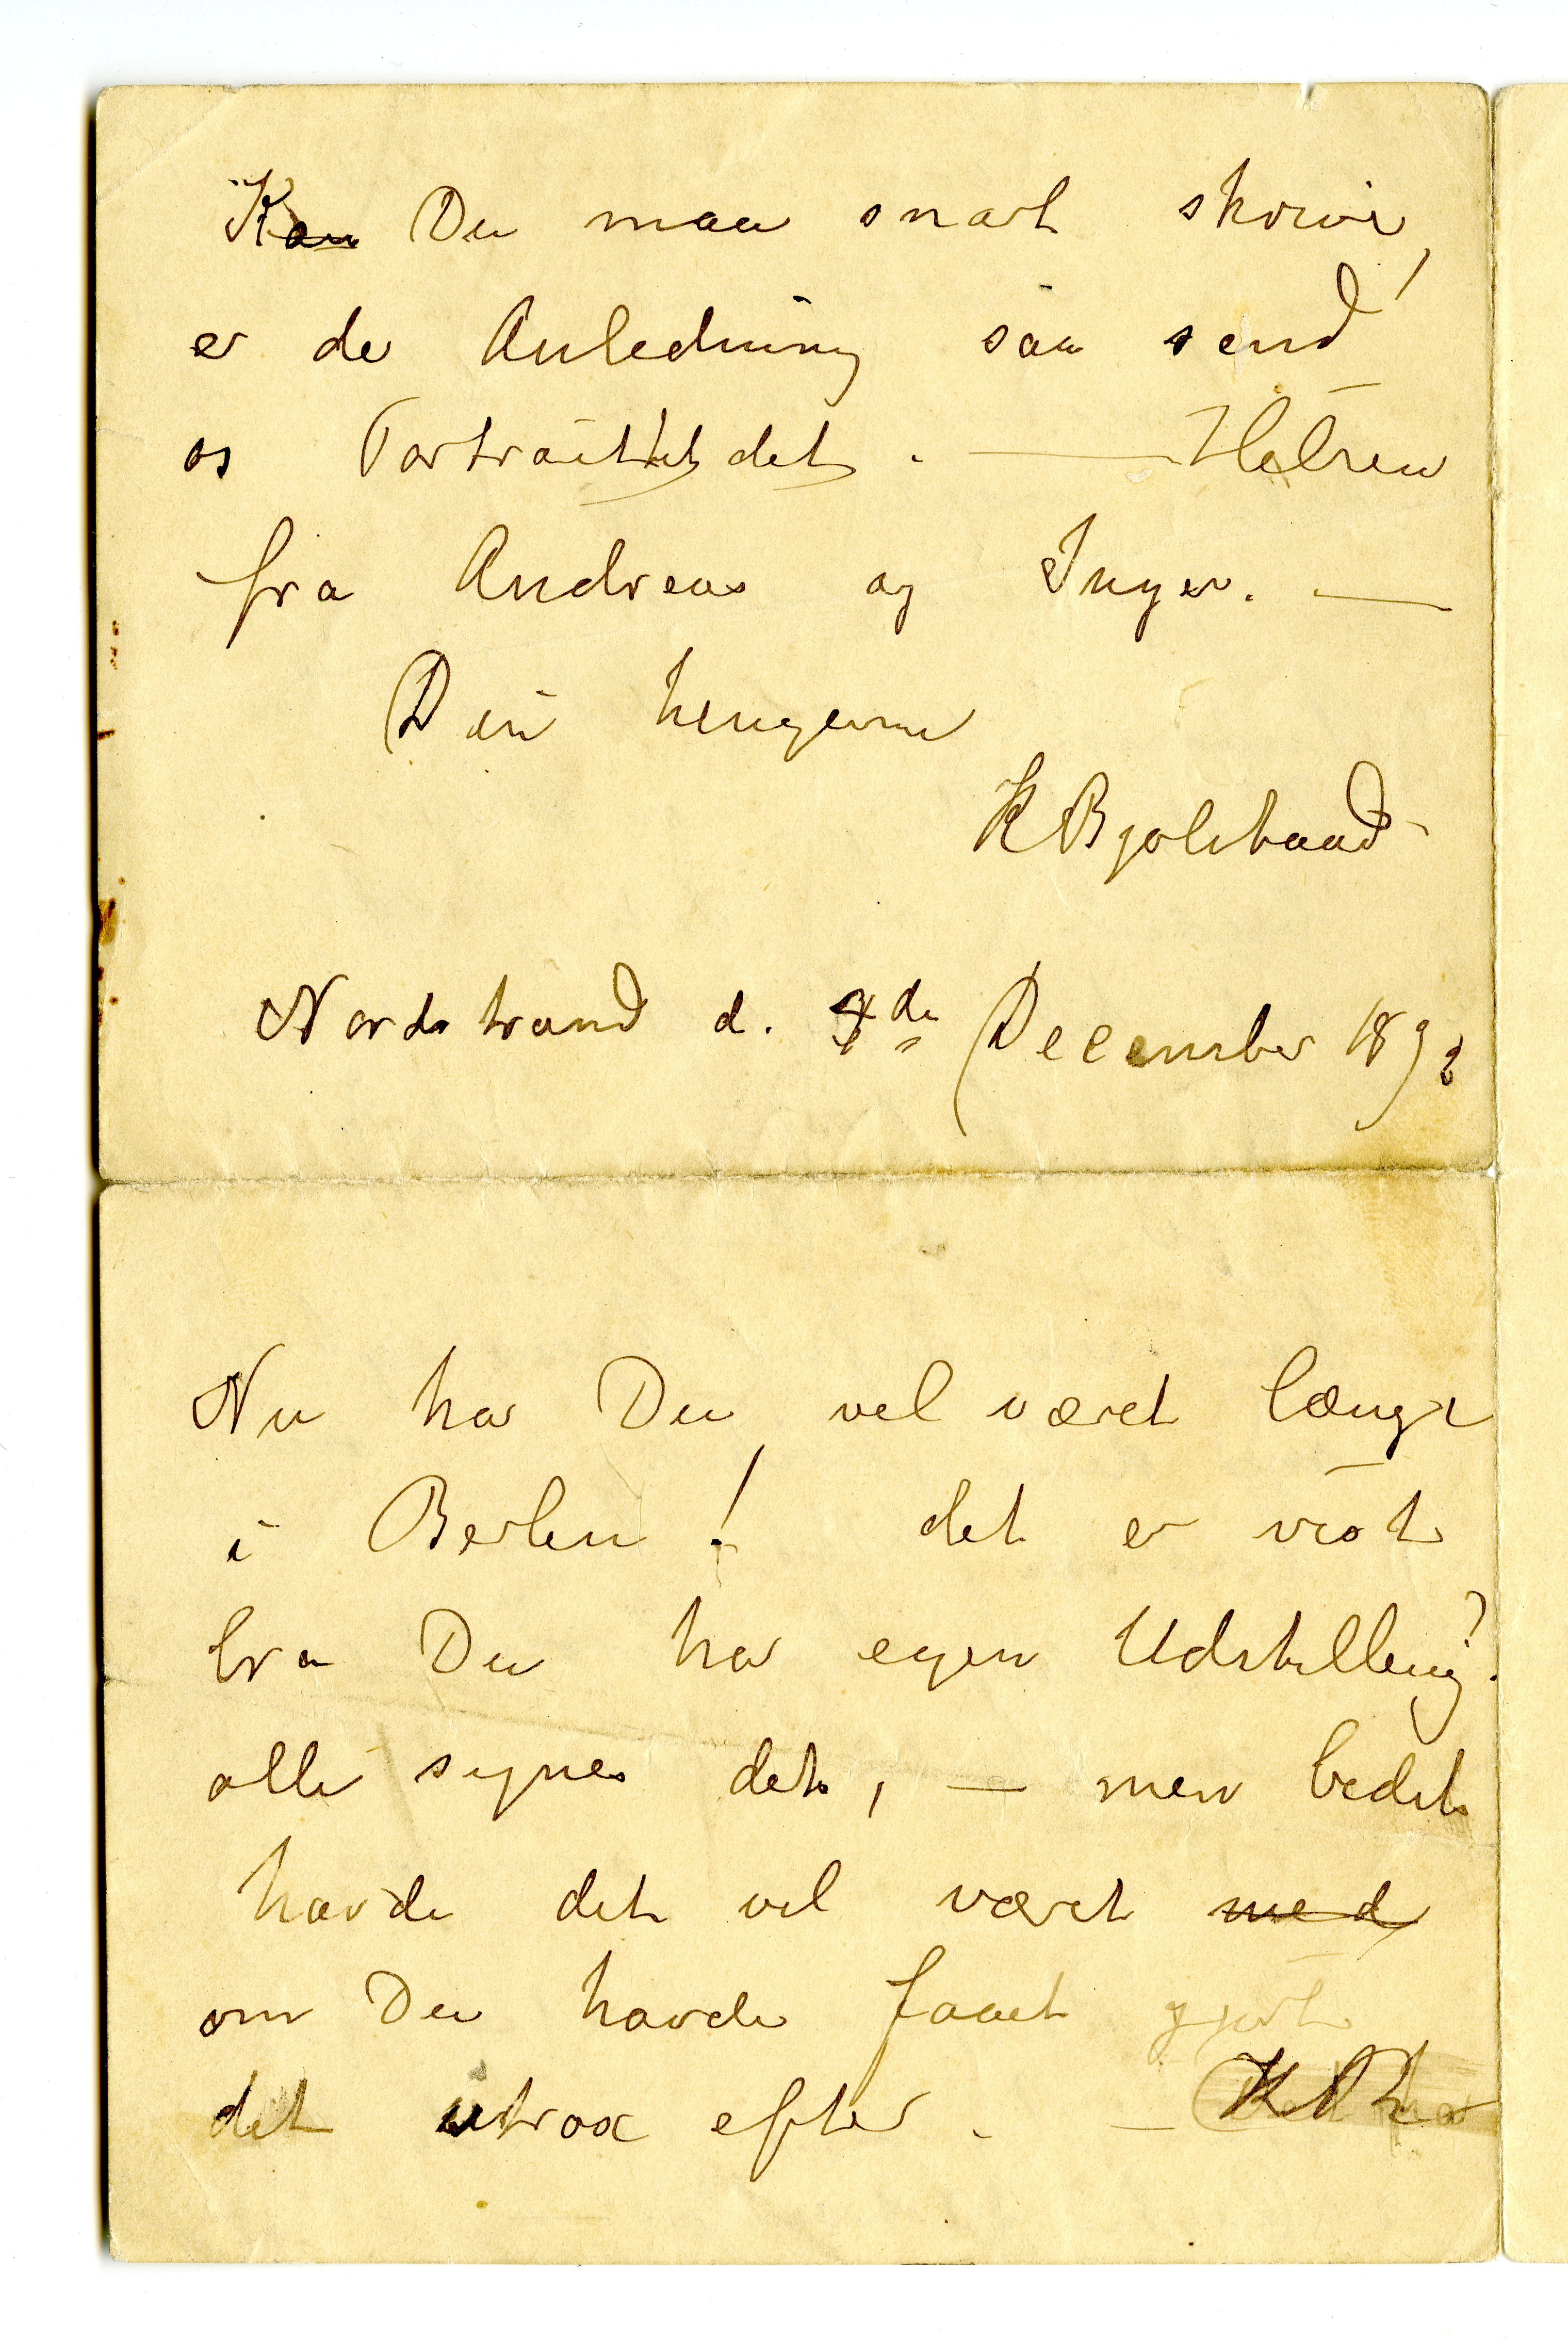 Kan Du maa snart skrive,
er der Anledning saa send
os Portraittet det. — Helsen
fra Andreas og Inger. —
Din hengivne
K Bjølstaad
Nordstrand d. de December 1892
Nu har Du vel været længe
i Berlin! det er vist
bra Du har egen Udstilling?
alle synes det, — men bedst
havde det vel været med
om Du havde faaet gjort
det strax efter. — KB